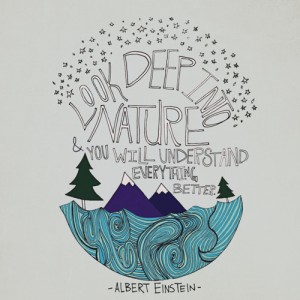 LOOK DEEP INTO
NATURE
& YOU WILL UNDERSTAND
EVERYTHING
BETTER.
- ALBERT EINSTEIN -